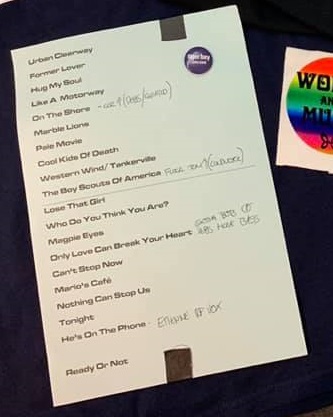 Urban Clearway
Former Lover
Hug My Soul
Like A Motorway
On The Shore -
Marble Lions
Pale Movie
Cool Kids Of Death
Western Wind/ Tankerville
The Boy Scouts Of America
Lose That Girl
Who Do You Think You Are?
Magpie Eyes
Only Love Can Break Your Heart
Can't Stop Now
Mario's Café
Nothing Can Stop Us
Tonight
He's On The Phone - ETIENNE OF VOX
Ready Or Not